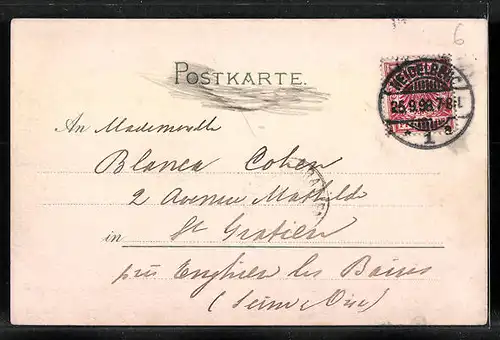 6
POSTKARTE.
HEIDELBERG
25.9.98. 7-8N.
1
An Mademoiselle
Blanca Cohen
2 Avenue Mathilde
in St Gratien
près Enghien les Bains
(Seine Oise)